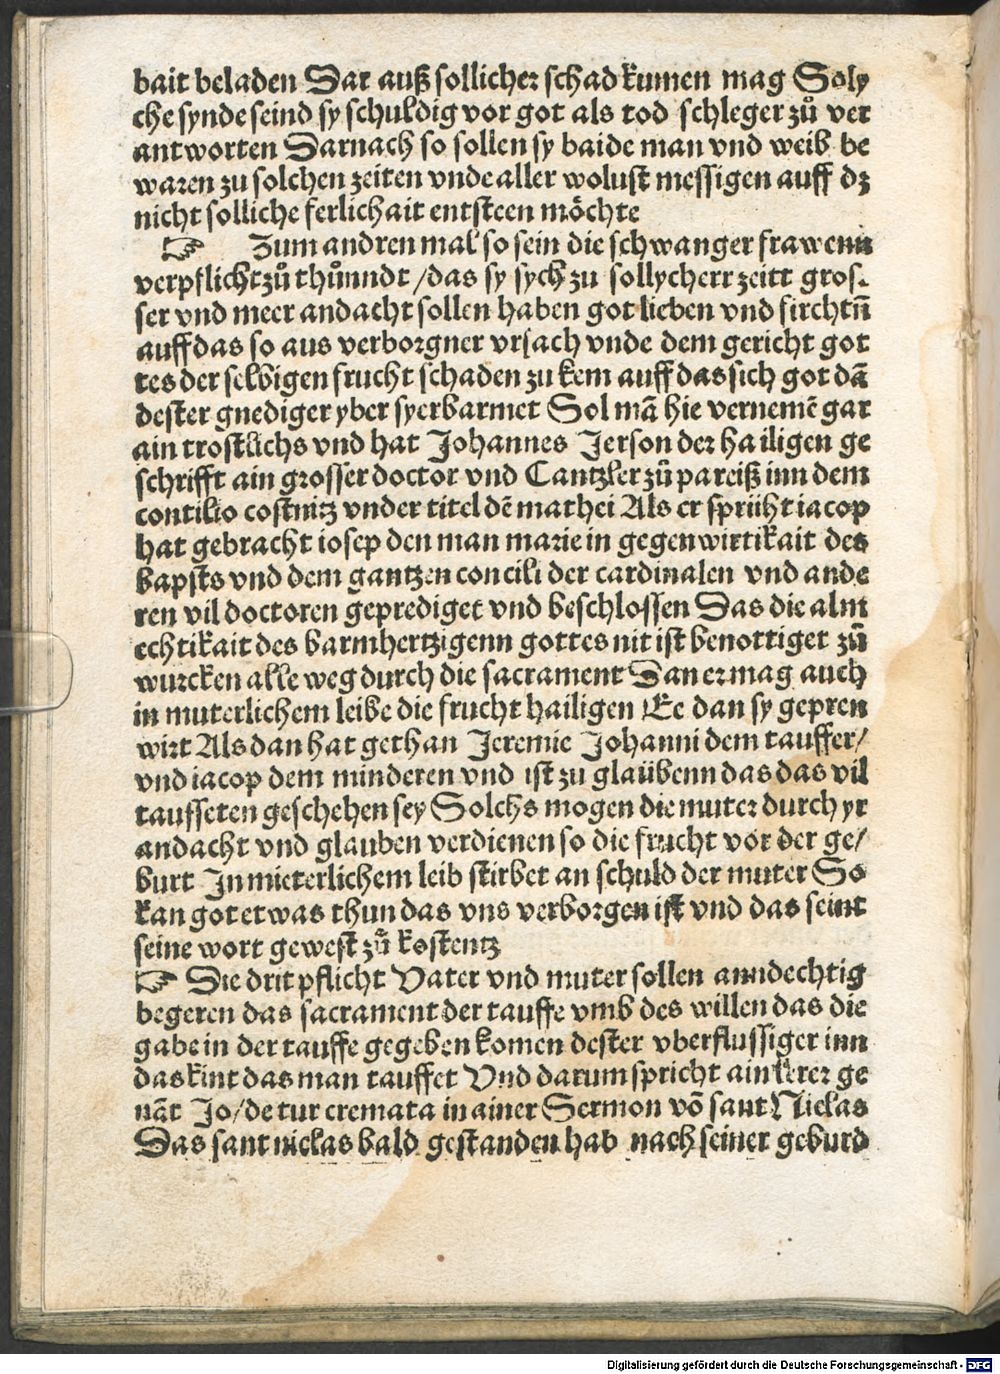 bait beladen Dar auß sollicher schad kumen mag Soly
che synde seind sy schuldig vor got als tod schleger zů ver
antworten Darnach so sollen sy baide man vnd weib be
waren zu solchen zeiten vnde aller wolust messigen auff dz
nicht solliche ferlichait entsteen möchte
☞ Zum andren mal so sein die schwanger frawenn
verpflicht zů thůnndt /das sy sych zu sollycherr zeitt gros-
ser vnd meer andacht sollen haben got lieben vnd firchtn̄
auff das so aus verborgner vrsach vnde dem gericht got
tes der selbigen frucht schaden zu kem auff das sich got dā
dester gnediger yber sy erbarmet Sol mā hie vernemē gar
ain trostlichs vnd hat Johannes Jerson der hailigen ge
schrifft ain grosser doctor vnd Cantzler zů pareiß inn dem
contilio costnitz vnder titel dē mathei Als er spricht iacop
hat gebracht iosep den man marie in gegenwirtikait des
bapsts vnd dem gantzen concili der cardinalen vnd ande
ren vil doctoren geprediget vnd beschlossen Das die alm
echtikait des barmhertzigenn gottes nit ist benottiget zů
wurcken alle weg durch die sacrament Dan er mag auch
in muterlichem leibe die frucht hailigen Ee dan sy gepren
wirt Als dan hat gethan Jeremie Johanni dem tauffer/
vnd iacop dem minderen vnd ist zu glaübenn das das vil
tauffeten geschehen sey Solchs mogen die muter durch yr
andacht vnd glauben verdienen so die frucht vor der ge/
burt In mieterlichem leib stirbet an schuld der muter So
kan got etwas thun das vns verborgen ist vnd das seint
seine wort gewest zů kostentz
☞ Die drit pflicht Vater vnd muter sollen anndechtig
begeren das sacrament der tauffe vmb des willen das die
gabe in der tauffe gegeben komen dester vberflussiger inn
das kint das man tauffet Vnd darum spricht ain lerer ge
nāt Jo/de tur cremata in ainer Sermon vō sant Niclas
Das sant niclas bald gestanden hab nach seiner geburd
Digitalisierung gefördert durch die Deutsche Forschungsgemeinschaft - DFG